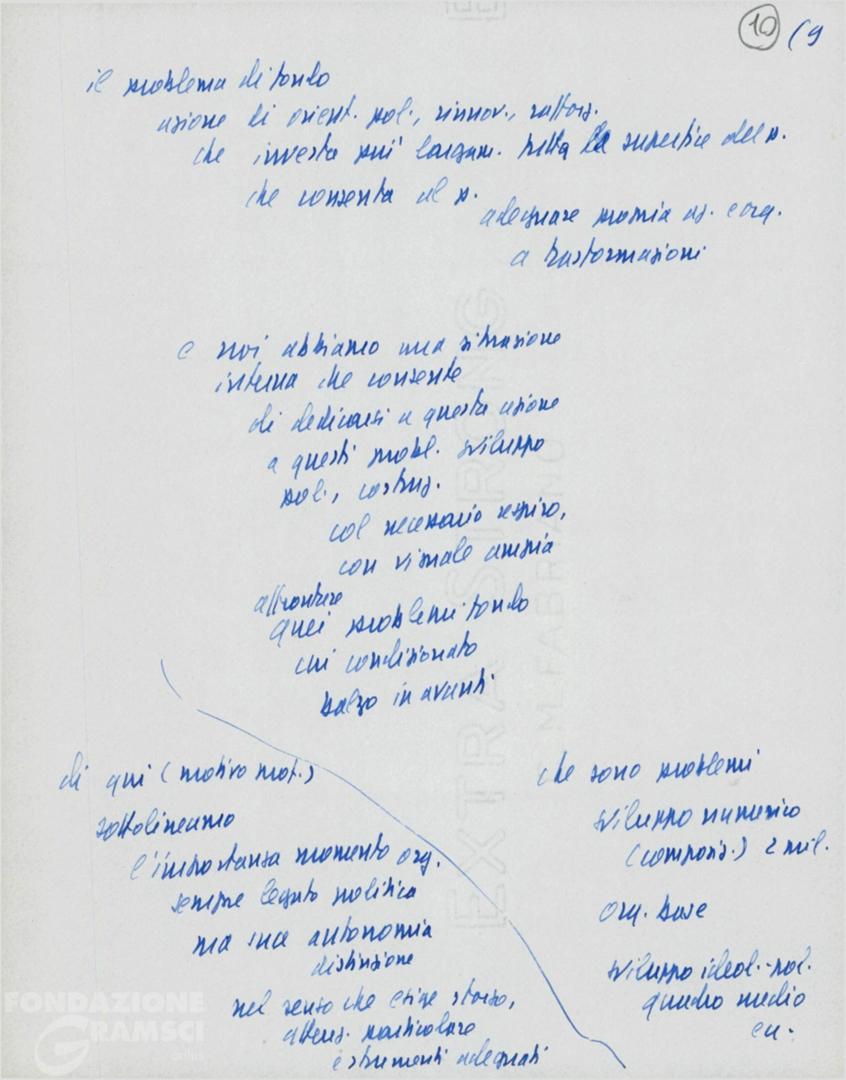 10 (9
il problema di fondo
azione di orient. pol., rinnov., rafforz.
che investa più largam. tutta la superficie del p.
che consenta al p.
adeguare propria az. e org.
a trasformazioni
e noi abbiamo una situazione
interna che consente
di dedicarsi a questa azione
a questi probl. sviluppo
pol., costruz.
col necessario respiro,
con visuale ampia
affrontare
quei problemi fondo
cui condizionato
balzo in avanti
di qui (motivo mot.)
sottolineamo
l'importanza momento org.
sempre legato politica
ma sua autonomia
distinzione
nel senso che esige sforzo,
attenz. particolare
e strumenti adeguati
che sono problemi
sviluppo numerico
(composiz.) 2 mil.
org. base
sviluppo ideol.-pol.
quadro medio
ecc.
EXTRA STRONG
FABRIANO
FONDAZIONE
GRAMSCI
onlus